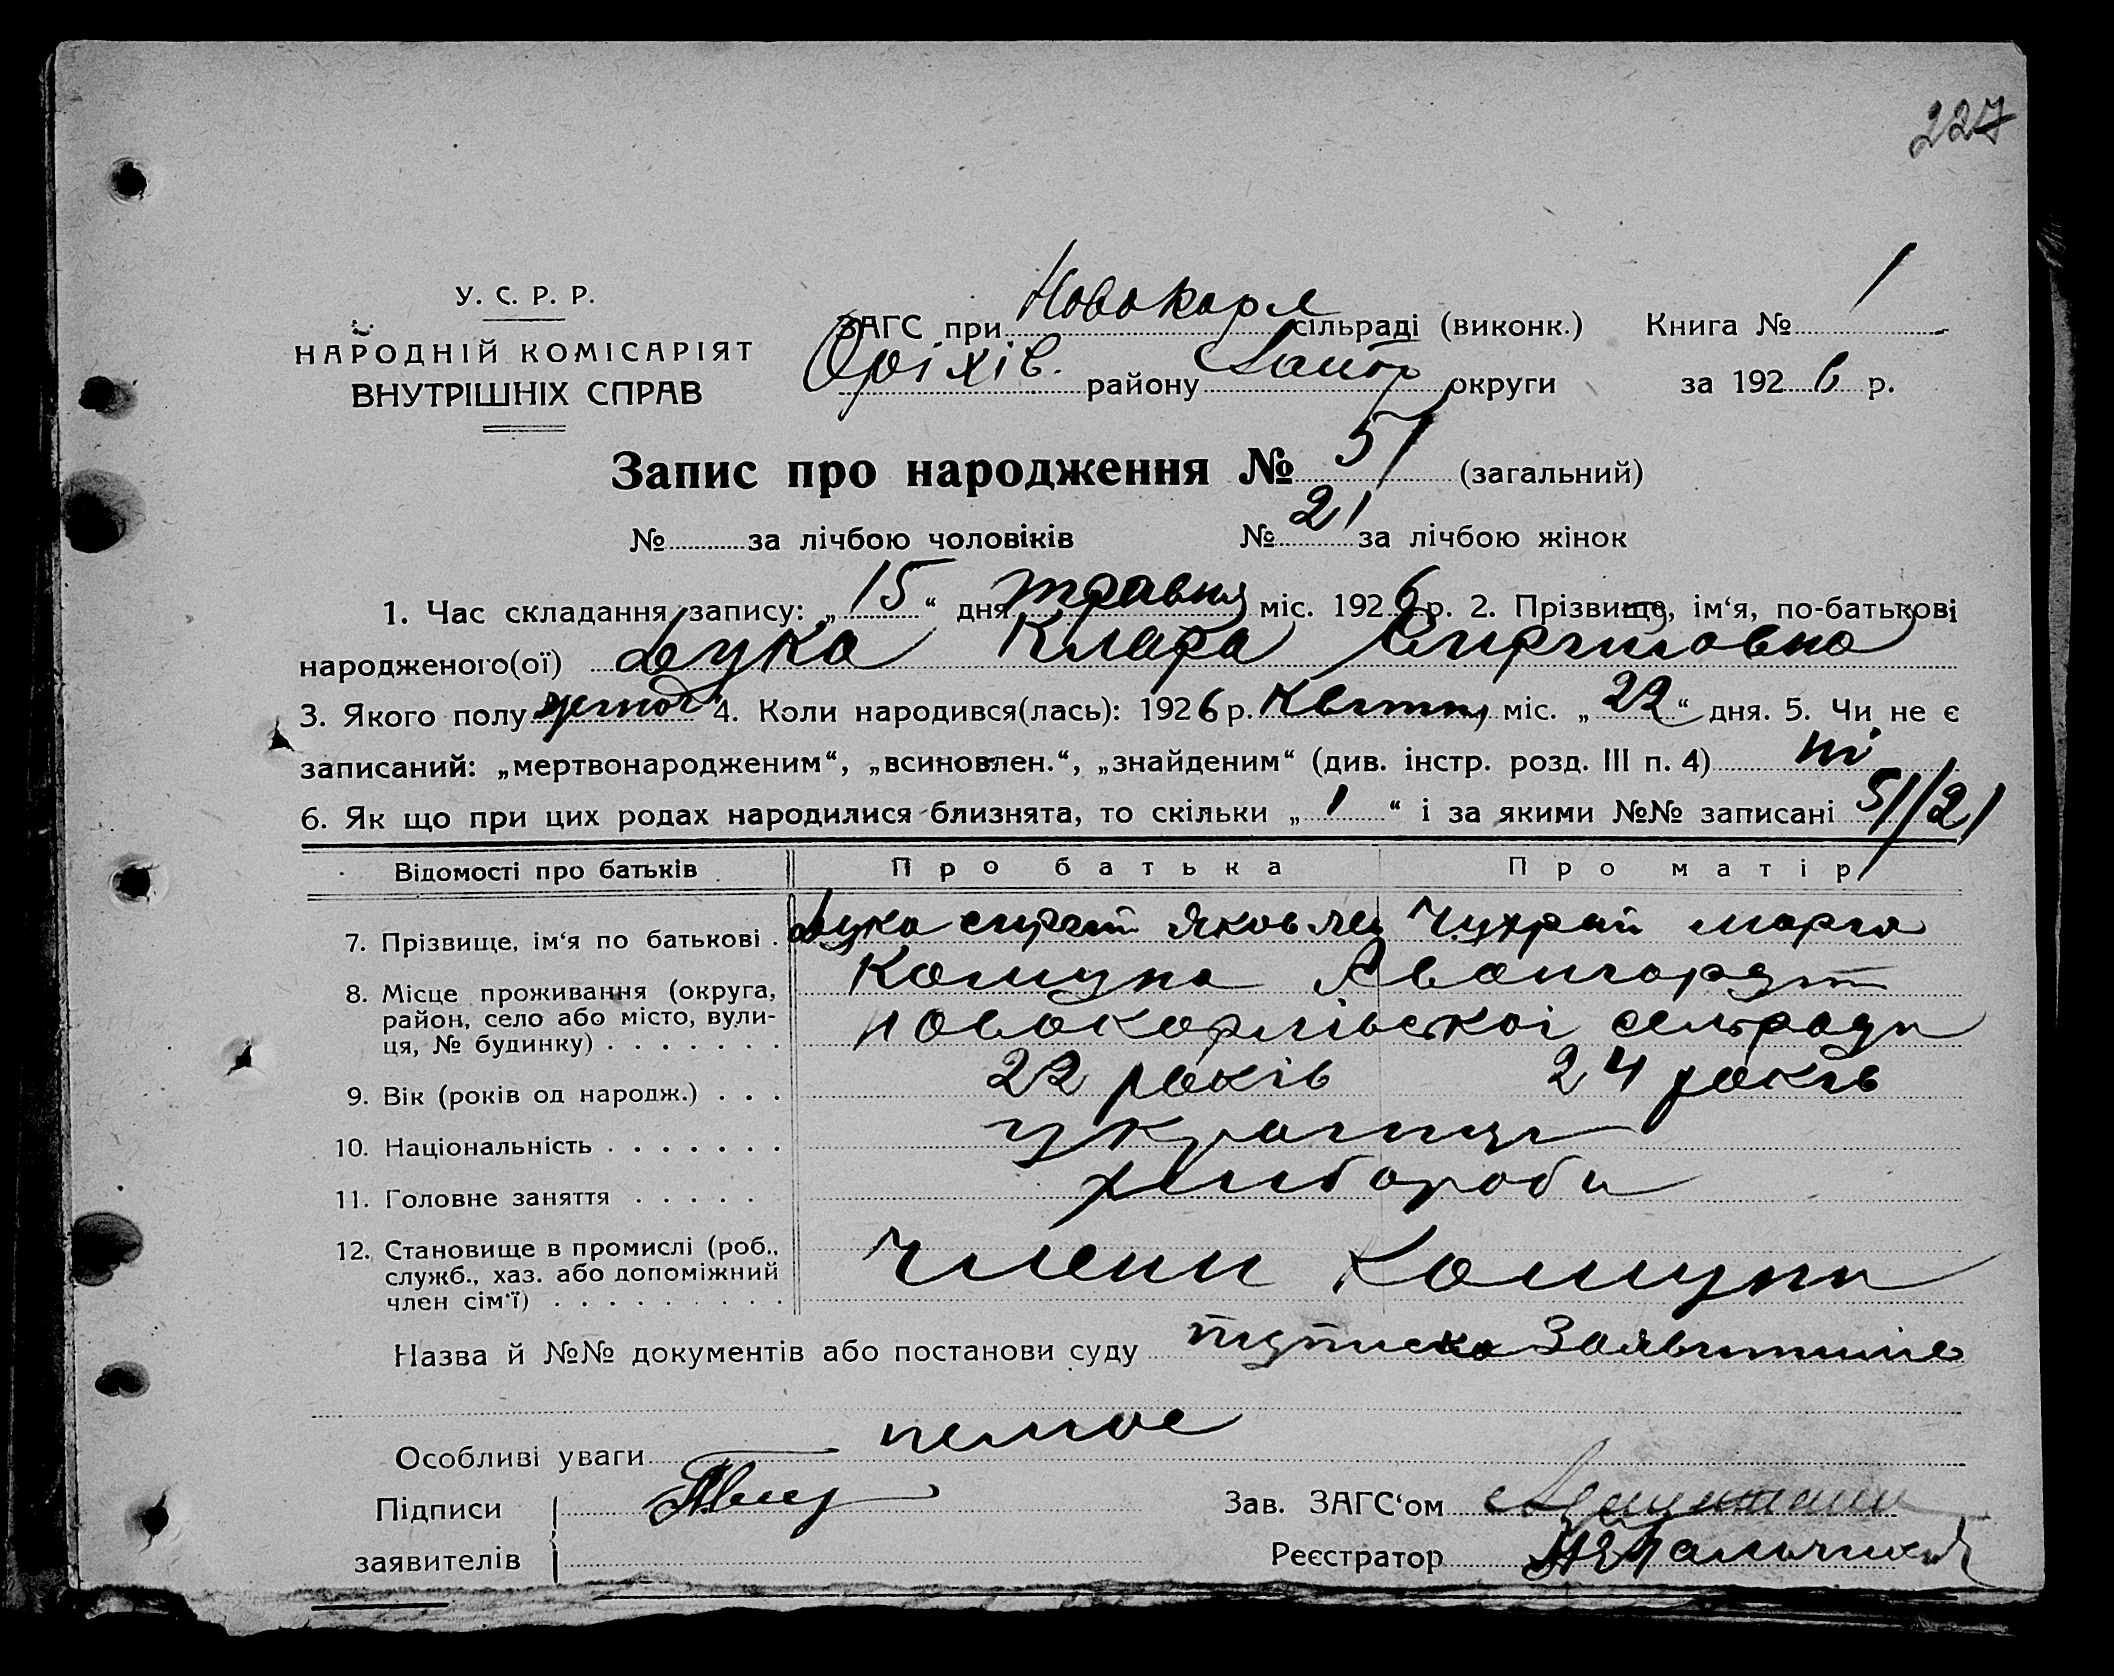 227
У. С. Р. Р.
НАРОДНІЙ КОМІСАРІЯТ
ВНУТРІШНІХ СПРАВ
ЗАГС при Новокарл сільраді (виконк.) Книга № 1
Оріхів. району Запор округи за 1926 р.
Запис про народження № 51 (загальний)
№ за лічбою чоловіків № 21 за лічбою жінок
1. Час складання запису: „15“ дня травня міс. 1926 р. 2. Прізвище, ім‘я, по-батькові
народженого(ої) Дука Клара Сиргиівна
3. Якого полу жіноч 4. Коли народився(лась): 1926 р. Квітня міс. „22“ дня. 5. Чи не є
записаний: „мертвонародженим“, „всиновлен.“, „знайденим“ (див. інстр. розд. III п. 4) ні
6. Як що при цих родах народилися близнята, то скільки „1“ і за якими №№ записані 51/21
Відомості про батьків Про батька Про матір
7. Прізвище, ім‘я по батькові . Дука Сиргій Яковлев Чухрай Марія
8. Місце проживання (округа, район, село або місто, вули-ця, № будинку) . . . . . . . Комуна Авангард
новокарлівської сельради
9. Вік (років од народж.) . . . 22 років 24 років
10. Національність . . . . . . . українці
11. Головне заняття . . . . . хлібороби
12. Становище в промислі (роб., служб., хаз. або допоміжний член сім‘ї) . . . . . . . . . члени Комуни
Назва й №№ документів або постанови суду підписка Заявителів
Особливі уваги немає
Підписи
заявителів
Зав. ЗАГС‘ом
Реєстратор